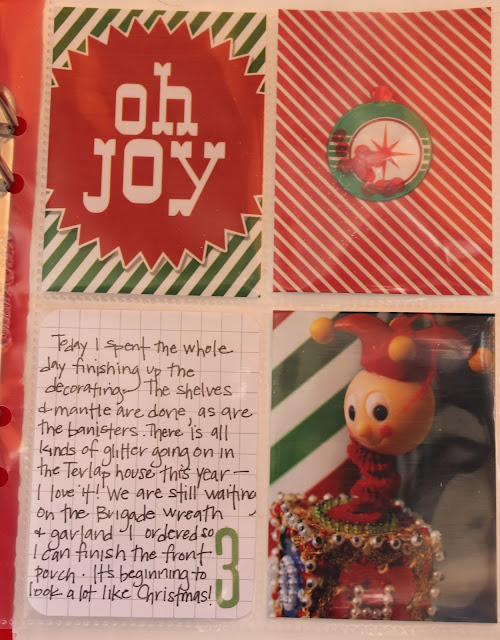 oh
JOY
Today I spent the whole
day finishing up the
decorating. The shelves
& mantle are done, as are
the banisters. There is all
kinds of glitter going on in
the Terlap house this year —
I love it! We are still waiting
on the Brigade wreath
& garland I ordered so
I can finish the front
porch. It's beginning to
look a lot like Christmas!
3